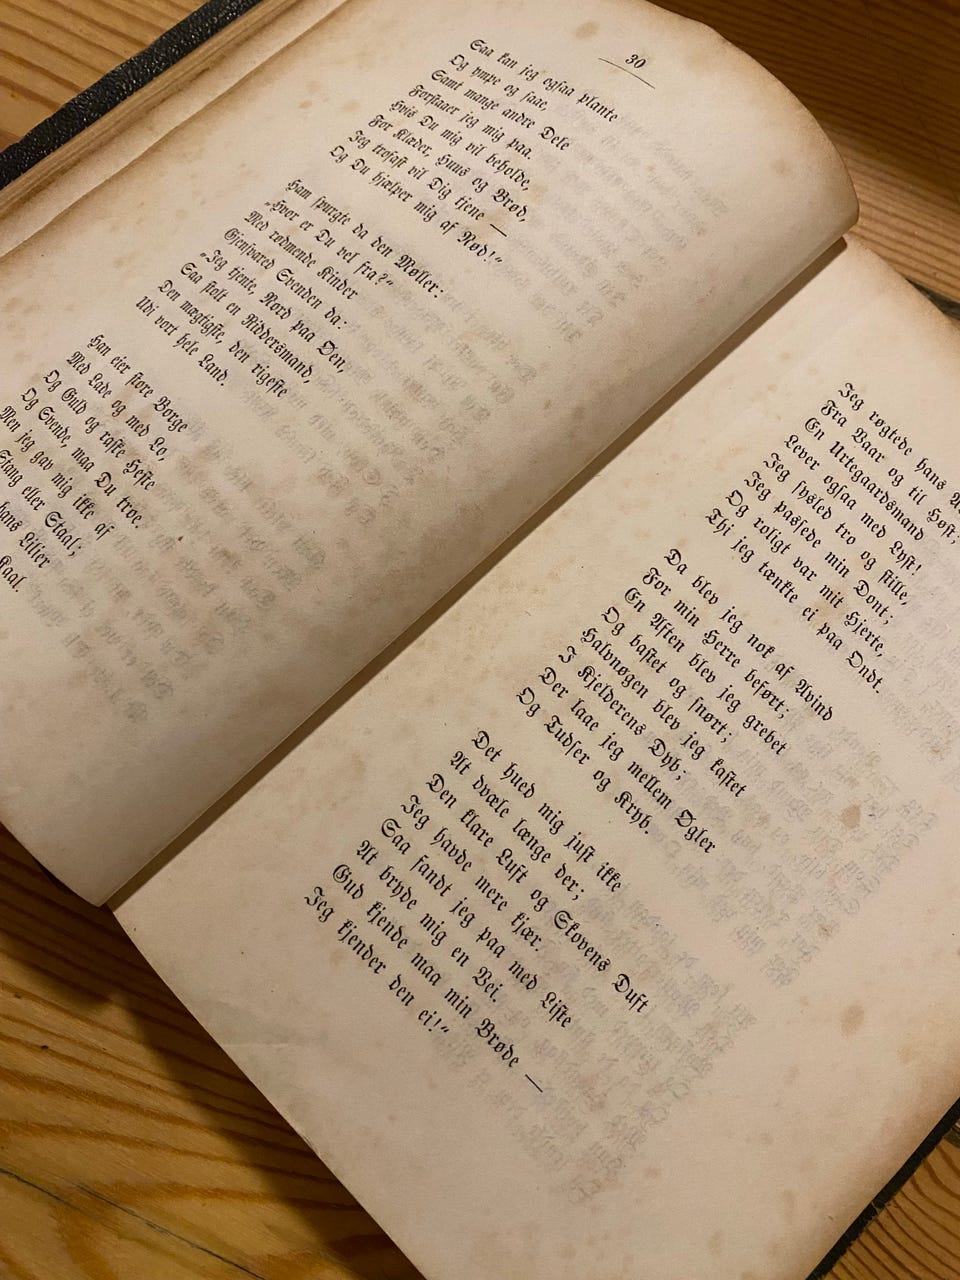 30
Saa kan jeg ogsaa plante
Og ympe og saae,
Samt mange andre Dele
Forstaaer jeg mig paa.
Hvis Du mig vil beholde,
For Klæder, Huus og Brød,
Jeg trofast vil Dig tjene —
Og Du hjælper mig af Nød!“
Ham spurgte da den Møller:
„Hvor er Du vel fra?“
Med rødmende Kinder
Gjensvared Svenden da:
„Jeg tjente, Nord paa Øen,
Saa stolt en Riddersmand,
Den mægtigste, den rigeste
Udi vort hele Land.
Han eier store Borge
Med Lade og med Lo,
Og Guld og raske Heste
Og Svende, maa Du troe.
Men jeg gav mig ikke af
Stang eller Staal;
hans Lilier
Kaal.
Jeg røgtede hans
Fra Vaar og til Høst;
En Urtegaardsmand
Lever ogsaa med Lyst!
Jeg sysled tro og stille,
Jeg passede min Dont;
Og roligt var mit Hjerte,
Thi jeg tænkte ei paa Ondt.
Da blev jeg nok af Avind
For min Herre beført;
En Aften blev jeg grebet
Og bastet og snørt;
Halvnøgen blev jeg kastet
I Kjelderens Dyb;
Der laae jeg mellem Øgler
Og Tudser og Kryb.
Det hued mig just ikke
At dvæle længe der;
Den klare Luft og Skovens Duft
Jeg havde mere kjær.
Saa fandt jeg paa med Liste
At bryde mig en Vei.
Gud kjende maa min Brøde —
Jeg kjender den ei!“